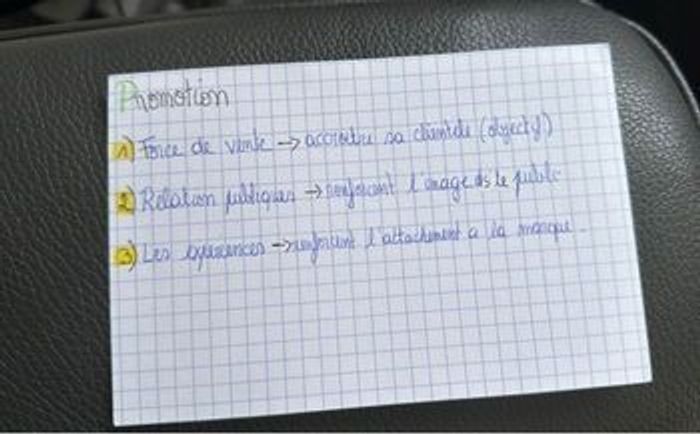 Promotion
1) Force de vente → accroître sa clientèle (objectif)
2) Relation publiques → renforcent l'image ds le public
3) Les expériences → renforcent l'attachement a la marque.